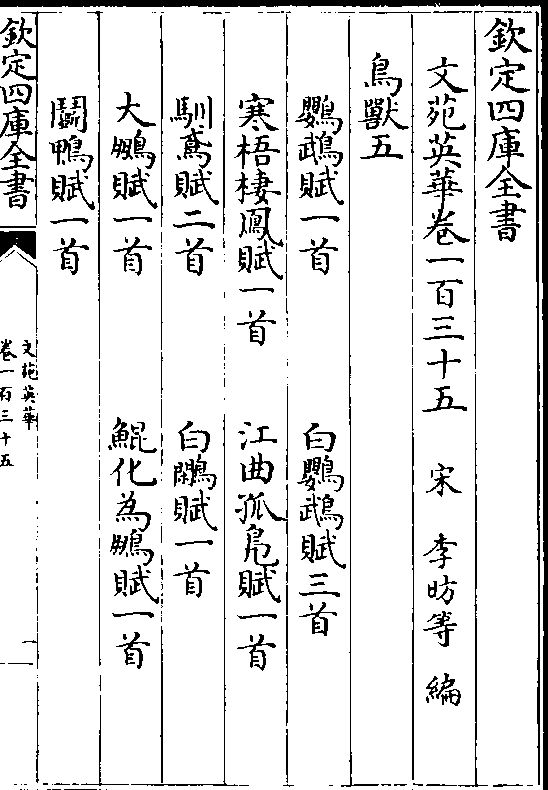 欽定四庫全書
文苑英華卷一百三十五　宋　李昉等　編
鳥獸五
鸚鵡賦一首　白鸚鵡賦三首
寒梧棲鳳賦一首　江曲孤鳧賦一首
馴鳶賦二首　白鷴賦一首
大鵬賦一首　鯤化為鵬賦一首
鬭鴨賦一首
欽定四庫全書
文苑英華
卷一百三十五
一